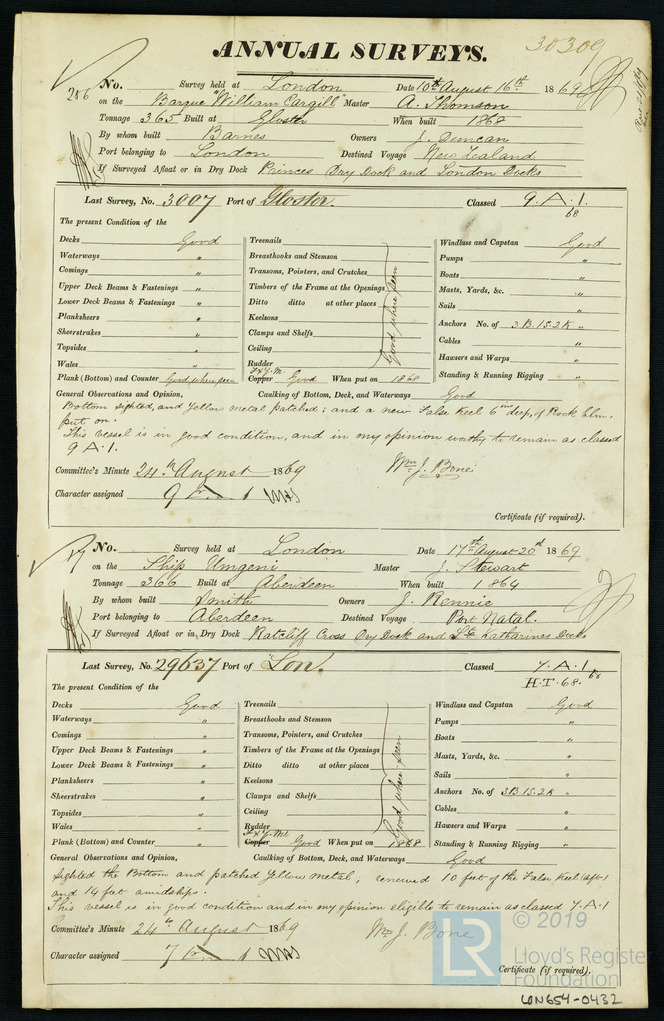 ANNUAL SURVEYS.
30309
286
No. Survey held at London Date 10th August 16th 1869
on the Barque "William Cargill" Master A. Thomson
Tonnage 365 Built at Gloster When built 1868
By whom built Barnes Owners J. Duncan
Port belonging to London Destined Voyage New Zealand
If Surveyed Afloat or in Dry Dock Princes Dry Dock and London Docks
Last Survey, No. 3007 Port of Gloster. Classed 9.A.1.
68
The present Condition of the
Decks Good
Waterways "
Comings "
Upper Deck Beams & Fastenings "
Lower Deck Beams & Fastenings "
Planksheers "
Sheerstrakes "
Topsides "
Wales "
Plank (Bottom) and Counter Good where seen
Treenails
Breasthooks and Stemson
Transoms, Pointers, and Crutches
Timbers of the Frame at the Openings
Ditto ditto at other places
Keelsons
Clamps and Shelfs
Ceiling
Rudder
Good where seen
F & Y. M.
Copper Good When put on 1868
Windlass and Capstan Good
Pumps "
Boats "
Masts, Yards, &c. "
Sails "
Anchors No. of 3B.1S.2K "
Cables "
Hawsers and Warps "
Standing & Running Rigging "
General Observations and Opinion, Caulking of Bottom, Deck, and Waterways Good
Bottom sighted, and Yellow metal patched; and a new False Keel 6 ins deep, of Rock Elm.
put on.
This vessel is in good condition, and in my opinion worthy to remain as classed
9 A.1.
Committee's Minute 24th August 1869
Wm J. Bone
Character assigned 9 A 1
Certificate (if required).
No. Survey held at London Date 17th August 20th 1869
on the Ship Umgeni Master J. Stewart
Tonnage 366 Built at Aberdeen When built 1864
By whom built Smith Owners J. Rennie
Port belonging to Aberdeen Destined Voyage Port Natal.
If Surveyed Afloat or in Dry Dock Ratcliff Cross Dry Dock and St. Katharines Docks
Last Survey, No. 29637 Port of Lon. Classed 7.A.1
68
H.T. 68.
The present Condition of the
Decks Good
Waterways "
Comings "
Upper Deck Beams & Fastenings "
Lower Deck Beams & Fastenings "
Planksheers "
Sheerstrakes "
Topsides "
Wales "
Plank (Bottom) and Counter "
Treenails
Breasthooks and Stemson
Transoms, Pointers, and Crutches
Timbers of the Frame at the Openings
Ditto ditto at other places
Keelsons
Clamps and Shelfs
Ceiling
Rudder
Good where seen
F & Y. Ml
Copper Good When put on 1868
Windlass and Capstan Good
Pumps "
Boats "
Masts, Yards, &c. "
Sails "
Anchors No. of 3B.1S.2K "
Cables "
Hawsers and Warps "
Standing & Running Rigging "
General Observations and Opinion, Caulking of Bottom, Deck, and Waterways Good
Sighted the Bottom and patched Yellow metal; renewed 10 feet of the False Keel (aft)
and 14 feet amidships.
This vessel is in good condition and in my opinion eligible to remain as classed 7.A.1
Committee's Minute 24th August 1869
Wm J. Bone
Character assigned 7 A 1
Certificate (if required).
LR
© 2019
Lloyd's Register
Foundation
LON654-0432